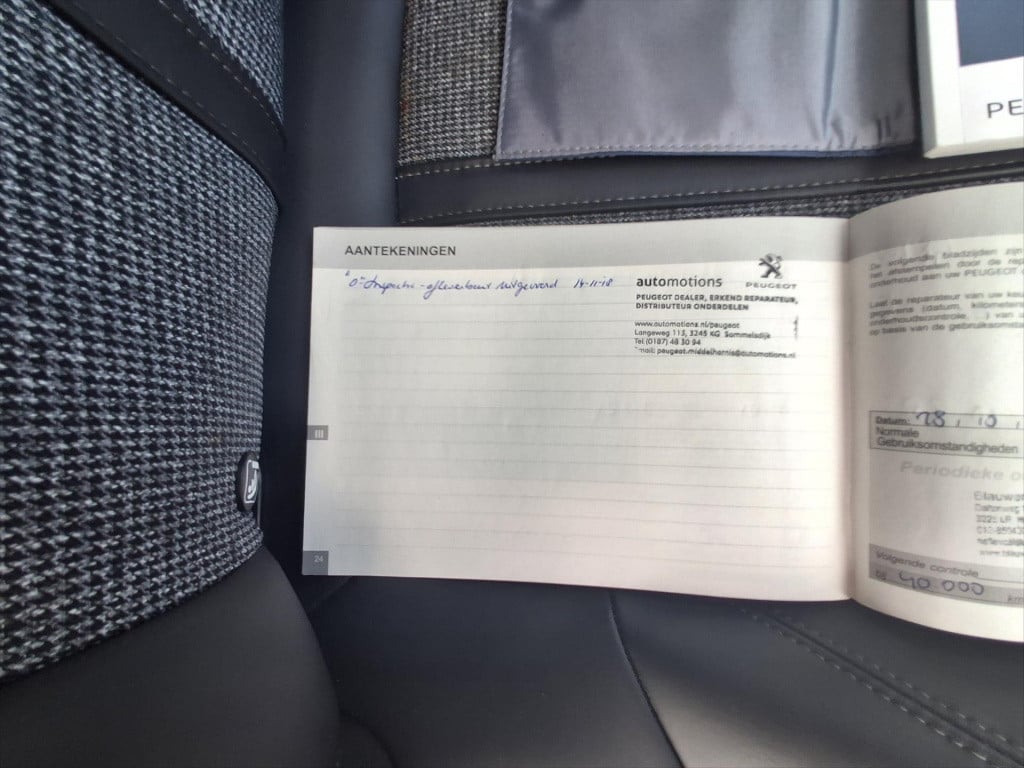 PE
AANTEKENINGEN
"0" Inspectie - afleverbeurt uitgevoerd 14-11-18
automotions
PEUGEOT
PEUGEOT DEALER, ERKEND REPARATEUR,
DISTRIBUTEUR ONDERDELEN
www.automotions.nl/peugeot
Langeweg 113, 3245 KG Sommelsdijk
Tel.(0187) 48 30 94
Email: peugeot.middelharnis@automotions.nl
III
24
De volgende bladzijden zijn
te laten afstempelen door de rep
onderhoud aan uw PEUGEOT
Laat de reparateur van uw keu
gegevens (datum, kilometer
onderhoudscontrole, ...) van
op basis van de gebruiksom
Datum: 18, 10,
Normale
Gebruiksomstandigheden
Periodieke o
Blauw
Daltonweg
Volgende controle
40.000 km